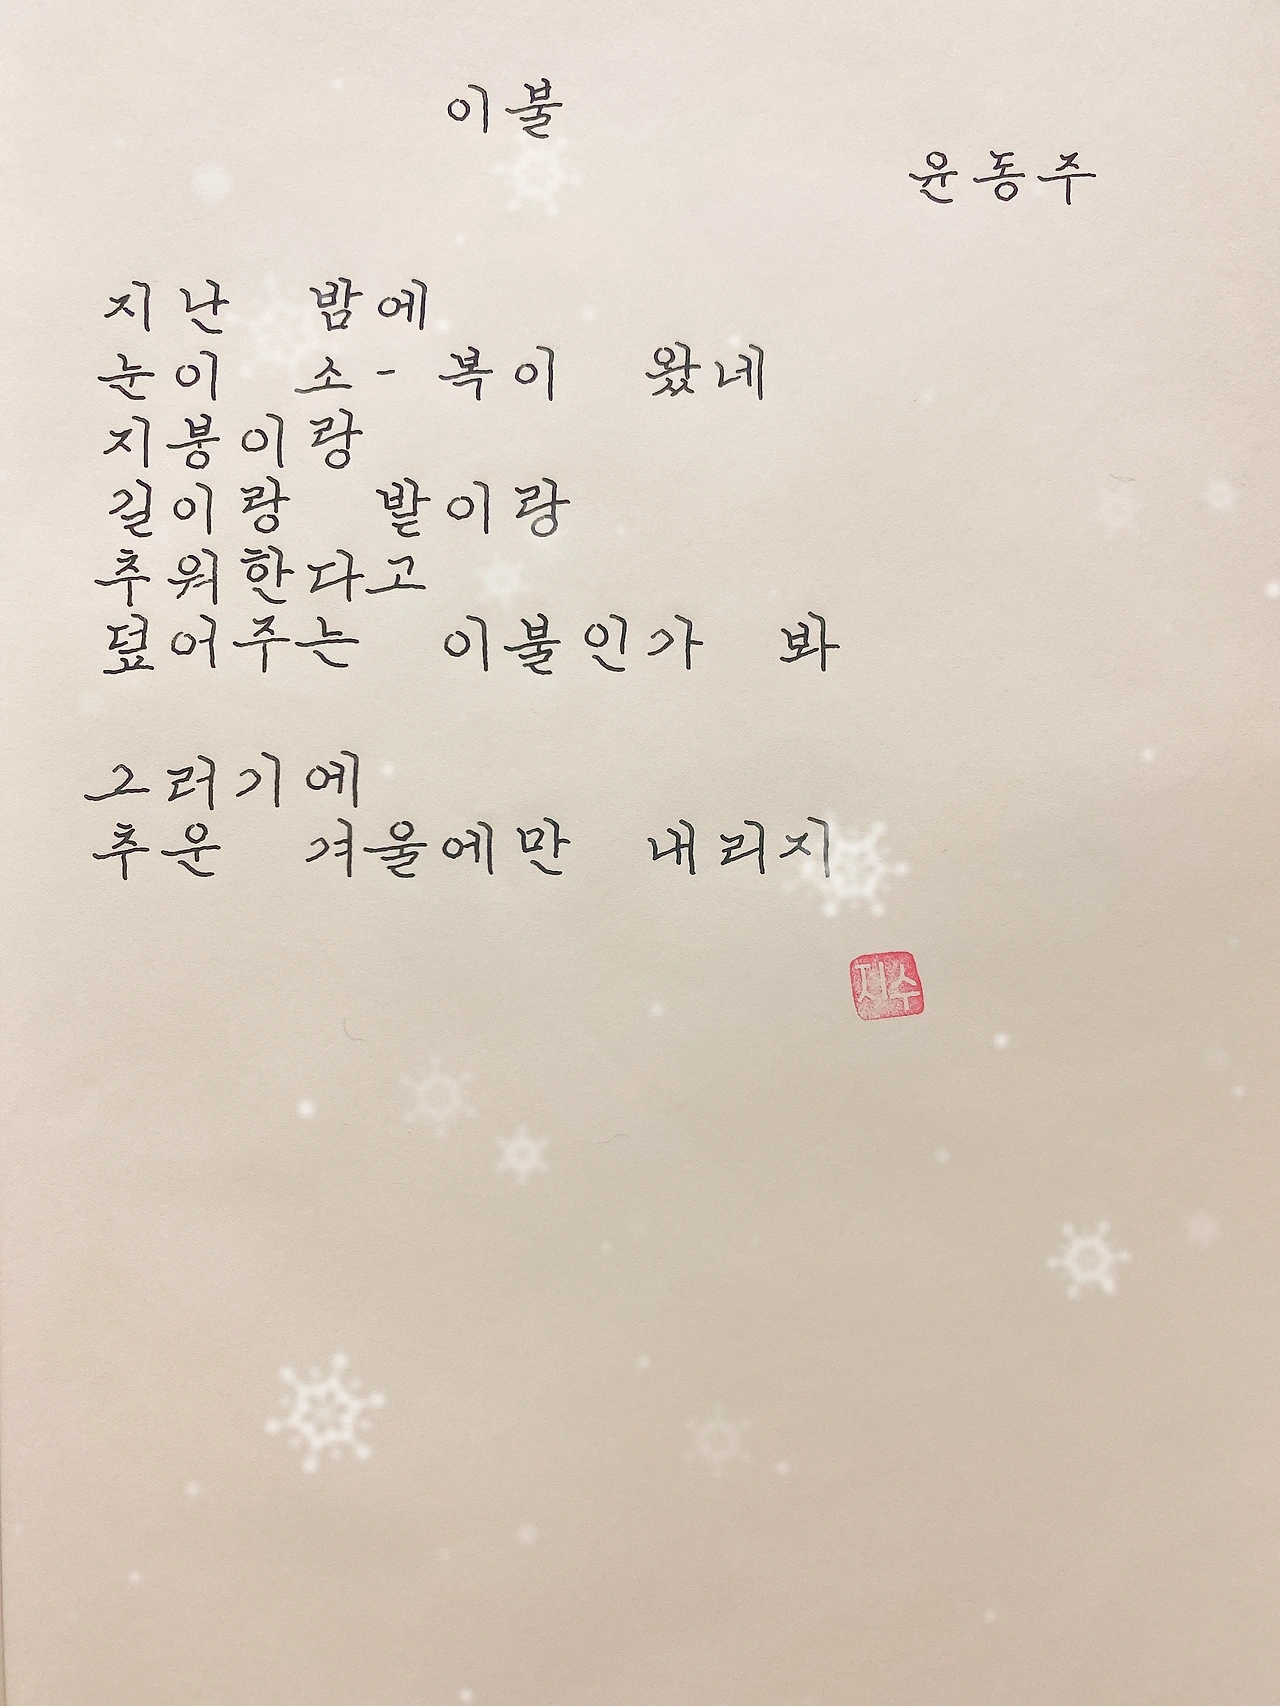 이불
윤동주
지난 밤에
눈이 소-복이 왔네
지붕이랑
길이랑 밭이랑
추워한다고
덮어주는 이불인가 봐
그러기에
추운 겨울에만 내리지